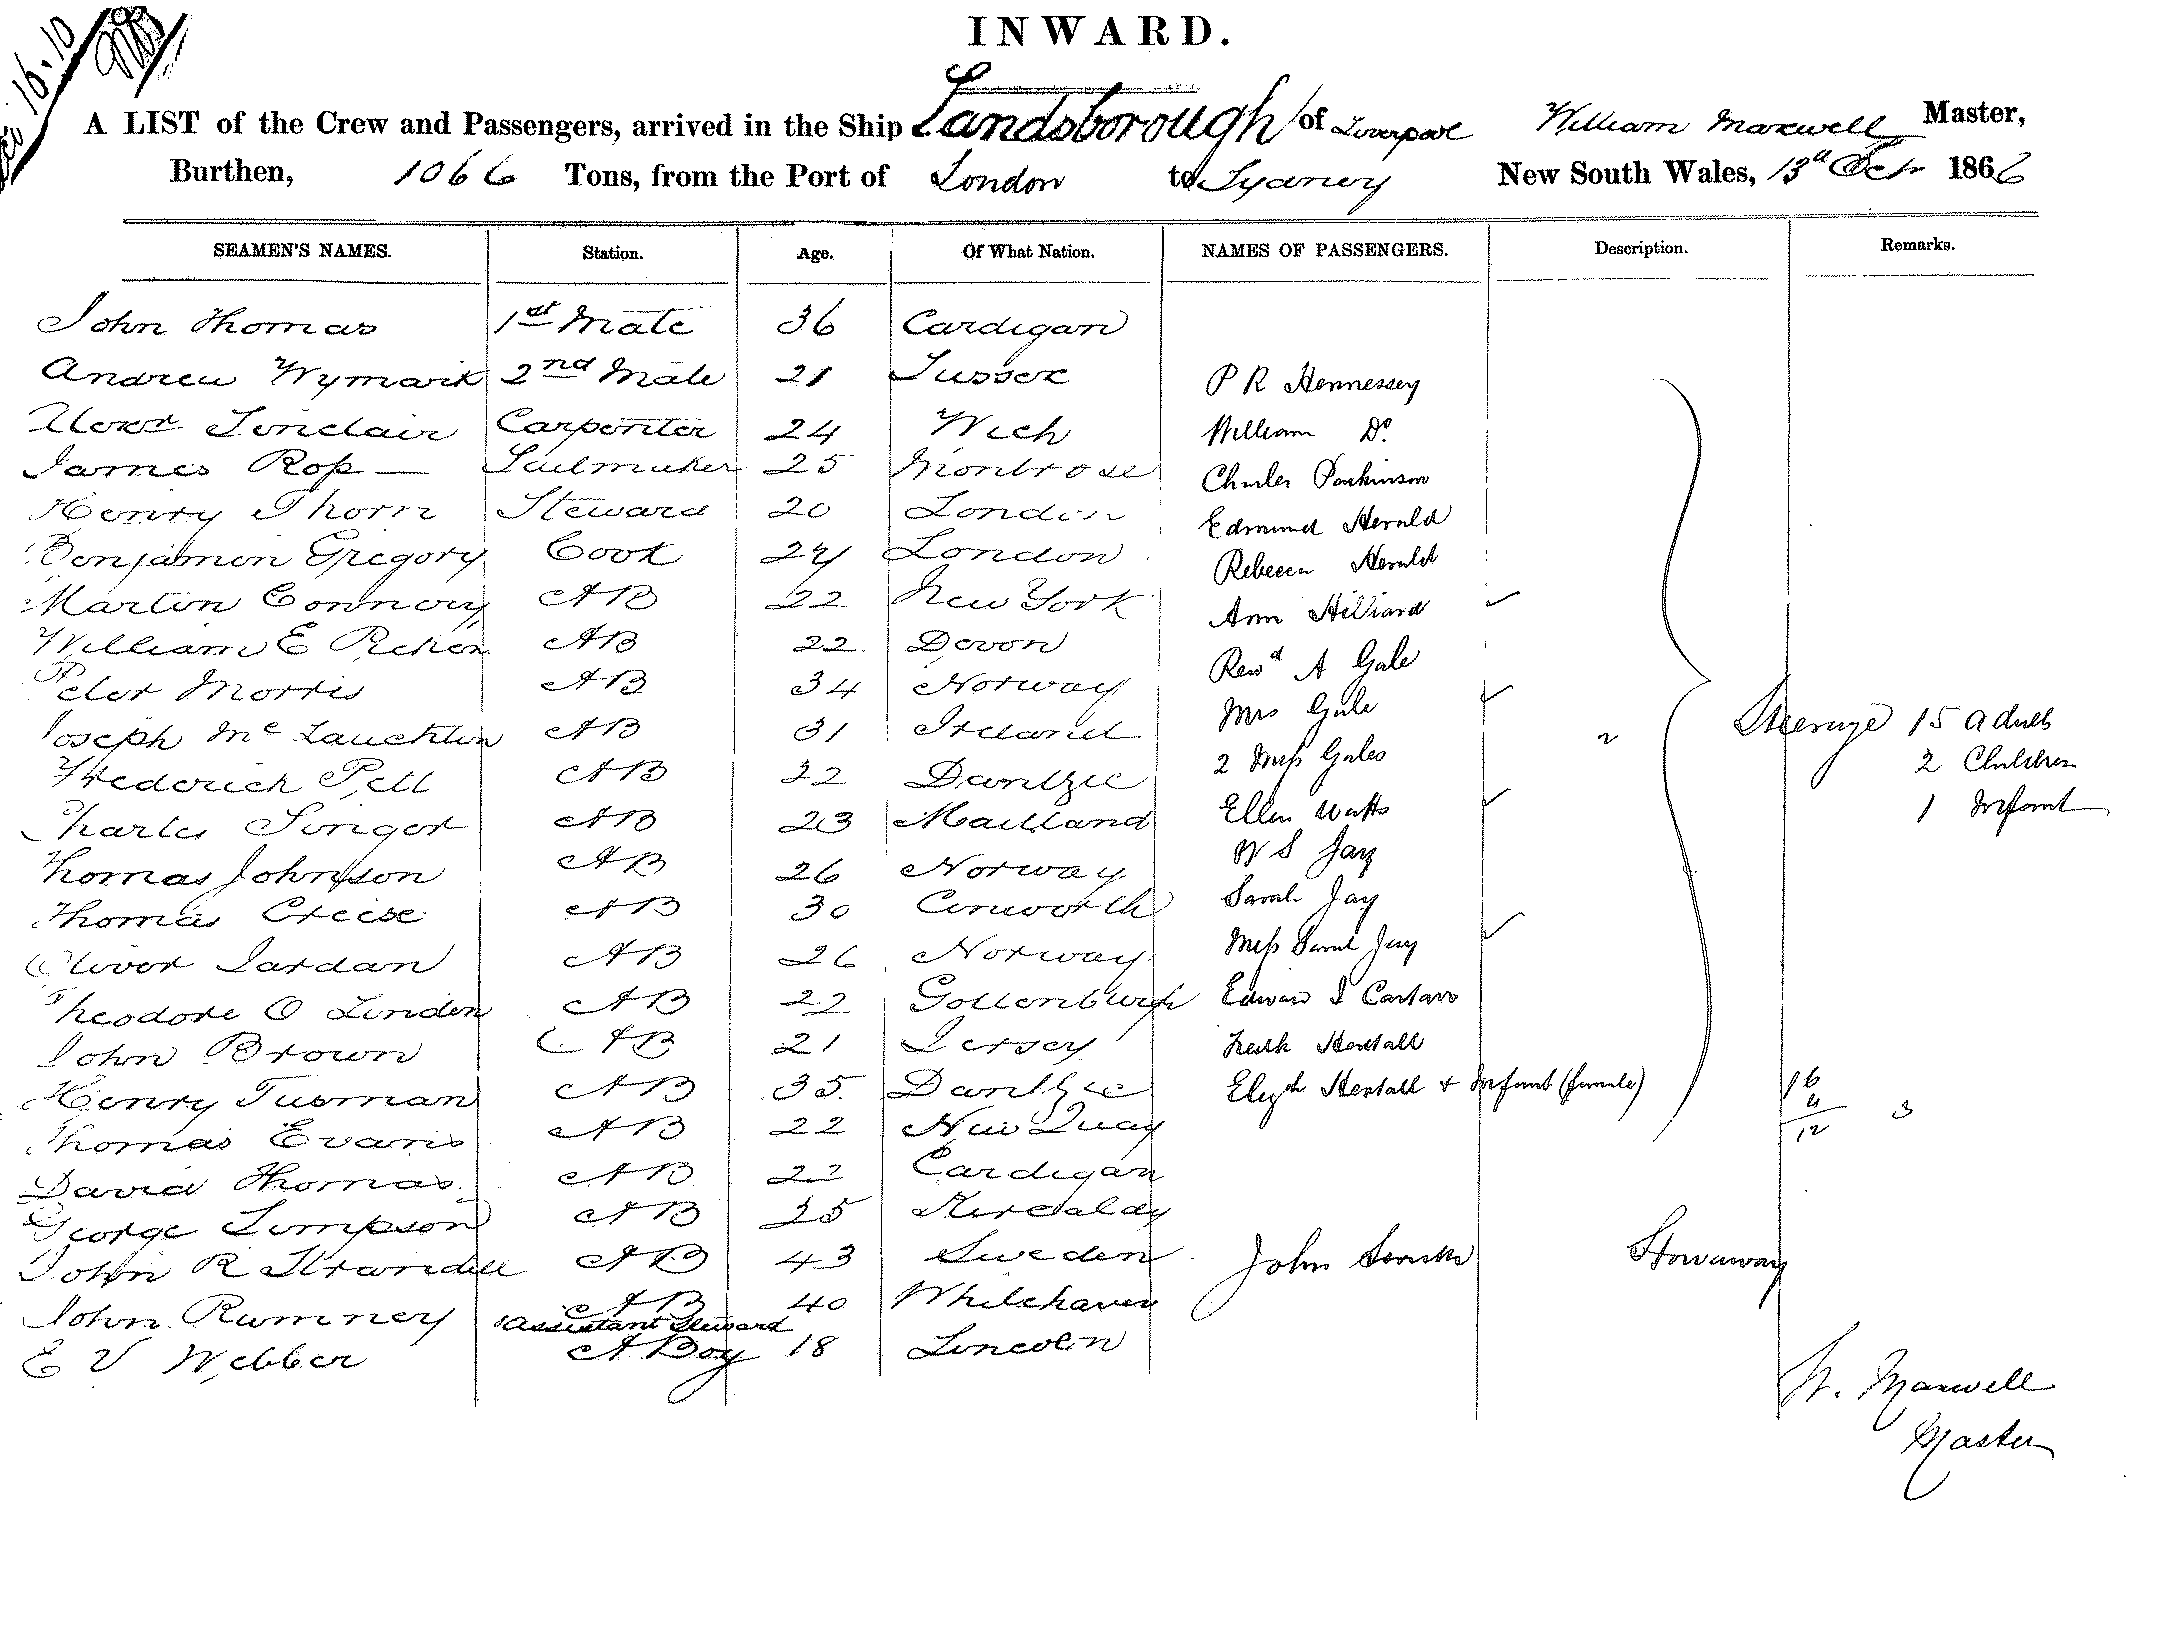 16.10
INWARD.
A LIST of the Crew and Passengers, arrived in the Ship Landsborough of Liverpool William Maxwell Master,
Burthen, 1066 Tons, from the Port of London to Sydney New South Wales, 13th Oct 1866
SEAMEN'S NAMES. Station. Age. Of What Nation. NAMES OF PASSENGERS. Description. Remarks.
John Thomas 1st Mate 36 Cardigan
Andrew Wymark 2nd Mate 21 Sussex P R Hennessey
Alexr Sinclair Carpenter 24 Wick William Do
James Ross Sailmaker 25 Montrose Charles Parkinson
Henry Thorn Steward 20 London Edmund Herald
Benjamin Gregory Cook 24 London Rebecca Herald
Martin Connory AB 22 New York Ann Hilliard
William E AB 22 Devon Revd A Gale
Peter Morris AB 34 Norway Mrs Gale
Joseph McLauchlin AB 31 Ireland 2 Miss Gales Steerage 15 Adults
Frederick Pell AB 22 Dantzic 2 Children
Charles Singer AB 23 Maitland Ellen Watts 1 Infant
Thomas Johnson AB 26 Norway W S Jay
Thomas Creese AB 30 Sarah Jay
Oliver Jardan AB 26 Norway Miss Sarah Jay
Theodore O Linden AB 22 Gottenburgh Edward S
John Brown AB 21 Jersey
Henry Tusman AB 35 Dantzic Elizth + Infant (female) 16
4
Thomas Evans AB 22 New Quay 12 3
David Thomas AB 22 Cardigan
George Simpson AB 25 Kircaldy
John R Strandell AB 43 Sweden John Smith Stowaway
John Rumney AB 40 Whitehaven
Assistant Steward
E V Webber A Boy 18 Lincoln
W. Maxwell
Master